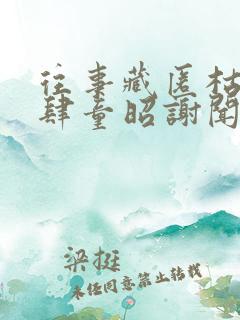 往事藏匿枯
肆量昭謝聞
梁挺
未经同意禁止转载